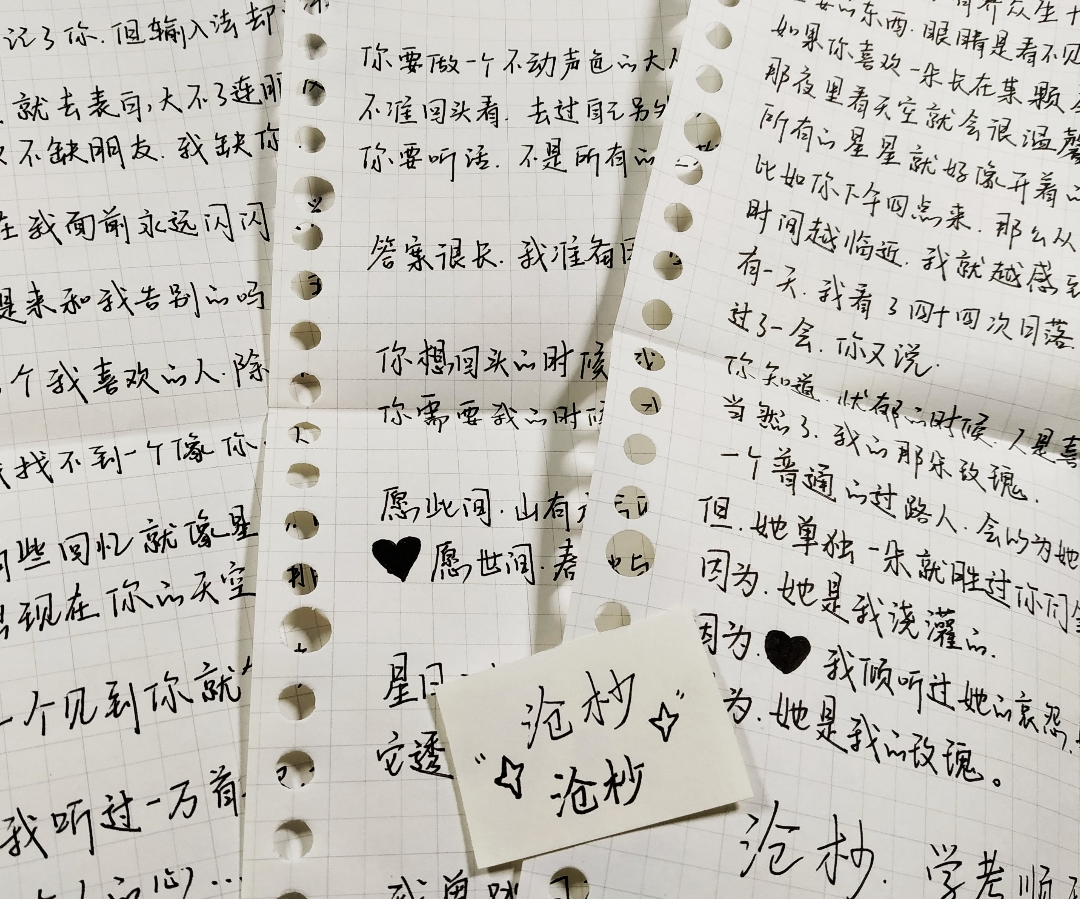 记了你.但输入法却
就去表白,大不了连朋
不缺朋友.我缺你
在我面前永远闪闪
是来和我告别的吗
个我喜欢的人.除
找不到一个像你
些回忆就像星
出现在你的天空
一个见到你就
我听过一万首
你要做一个不动声色的大人
不准回头看.去过自己另外
你要听话.不是所有的
答案很长.我准备用
你想回头的时候
你需要我的时候
愿此间.山有
愿世间.春
星
它透
的东西.眼睛是看不见
如果你喜欢一朵长在某颗
那夜里看天空就会很温馨
所有的星星就好像开着
比如你下午四点来.那么从
时间越临近.我就越感到
有一天.我看了四十四次日落
过了一会.你又说.
你知道.忧郁的时候.人是喜
当然了.我的那朵玫瑰.
一个普通的过路人.会的为她
但.她单独一朵就胜过你们全
因为.她是我浇灌的.
因为.♥我倾听过她的哀怨.
为.她是我的玫瑰。
沧杪.学考顺
"沧杪"
沧杪